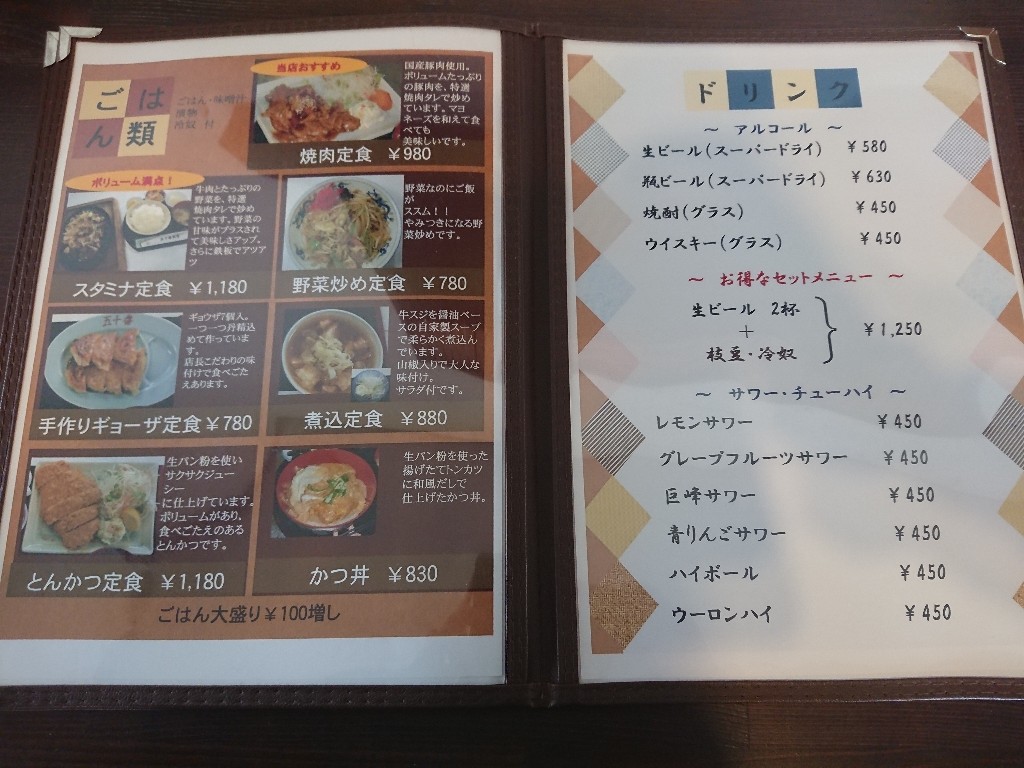 ごは
ん類
ごはん・味噌汁
漬物
冷奴 付
当店おすすめ
国産豚肉使用。
ボリュームたっぷり
の豚肉を、特選
焼肉タレで炒め
ています。マヨ
ネーズを和えて食
べても
美味しいです。
焼肉定食 ￥980
ボリューム満点！
牛肉とたっぷりの
野菜を、特選
焼肉タレで炒め
ています。野菜の
甘味がプラスされ
て美味しさアップ。
さらに鉄板でアツア
ツ
スタミナ定食 ￥1,180
野菜なのにご飯
が
ススム！！
やみつきになる野
菜炒めです。
野菜炒め定食 ￥780
ギョウザ7個入。
一つ一つ丹精込
めて作っていま
す。
店長こだわりの味
付けで食べごた
えあります。
手作りギョーザ定食 ￥780
牛スジを醤油ベー
スの自家製スープ
で柔らかく煮込ん
でいます。
山椒入りで大人な
味付け。
サラダ付です。
煮込定食 ￥880
生パン粉を使い
サクサクジュー
シー
に仕上げています。
ボリュームがあり、
食べごたえのある
とんかつです。
とんかつ定食 ￥1,180
生パン粉を使った
揚げたてトンカツ
に和風だしで
仕上げたかつ丼。
かつ丼 ￥830
ごはん大盛り￥100増し
ドリンク
～ アルコール ～
生ビール(スーパードライ) ￥580
瓶ビール(スーパードライ) ￥630
焼酎(グラス) ￥450
ウイスキー(グラス) ￥450
～ お得なセットメニュー ～
生ビール 2杯
＋
枝豆・冷奴
￥1,250
～ サワー・チューハイ ～
レモンサワー ￥450
グレープフルーツサワー ￥450
巨峰サワー ￥450
青りんごサワー ￥450
ハイボール ￥450
ウーロンハイ ￥450